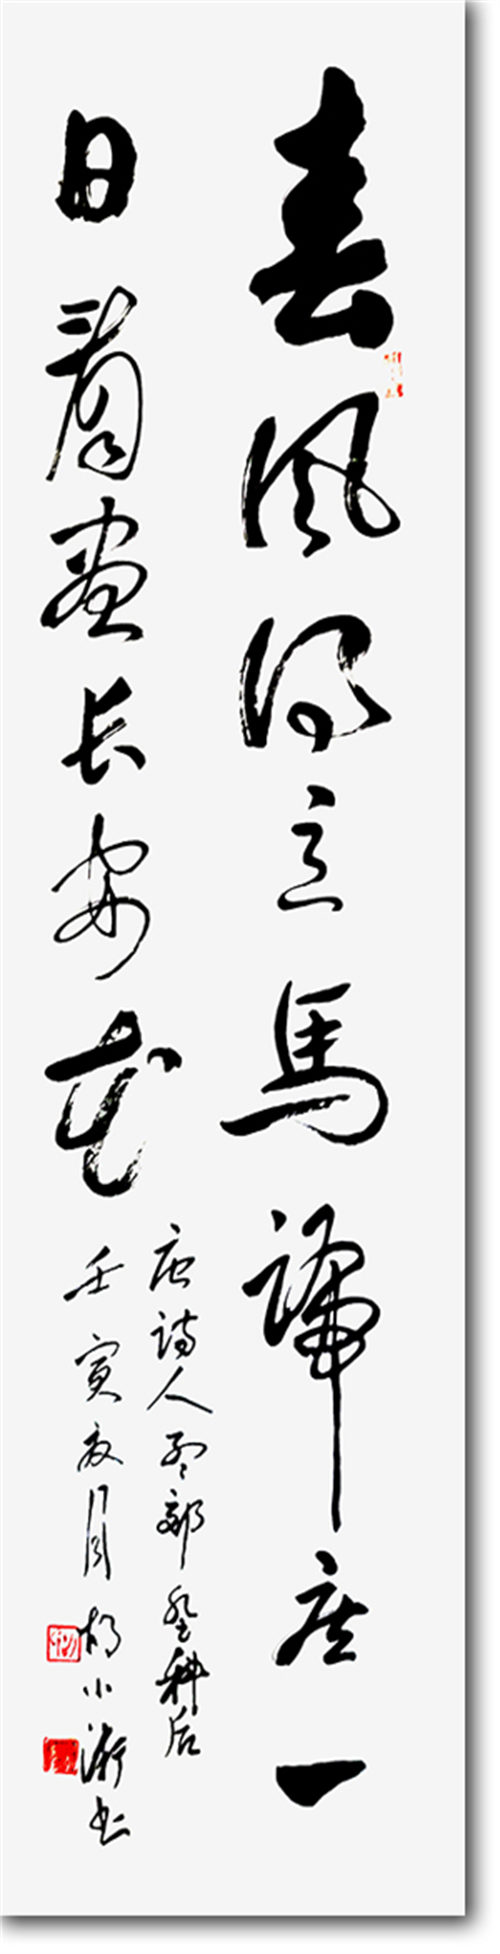 春风得意馬蹄疾一
日看盡长安花
唐诗人孟郊登科后
壬寅夏月 小 书